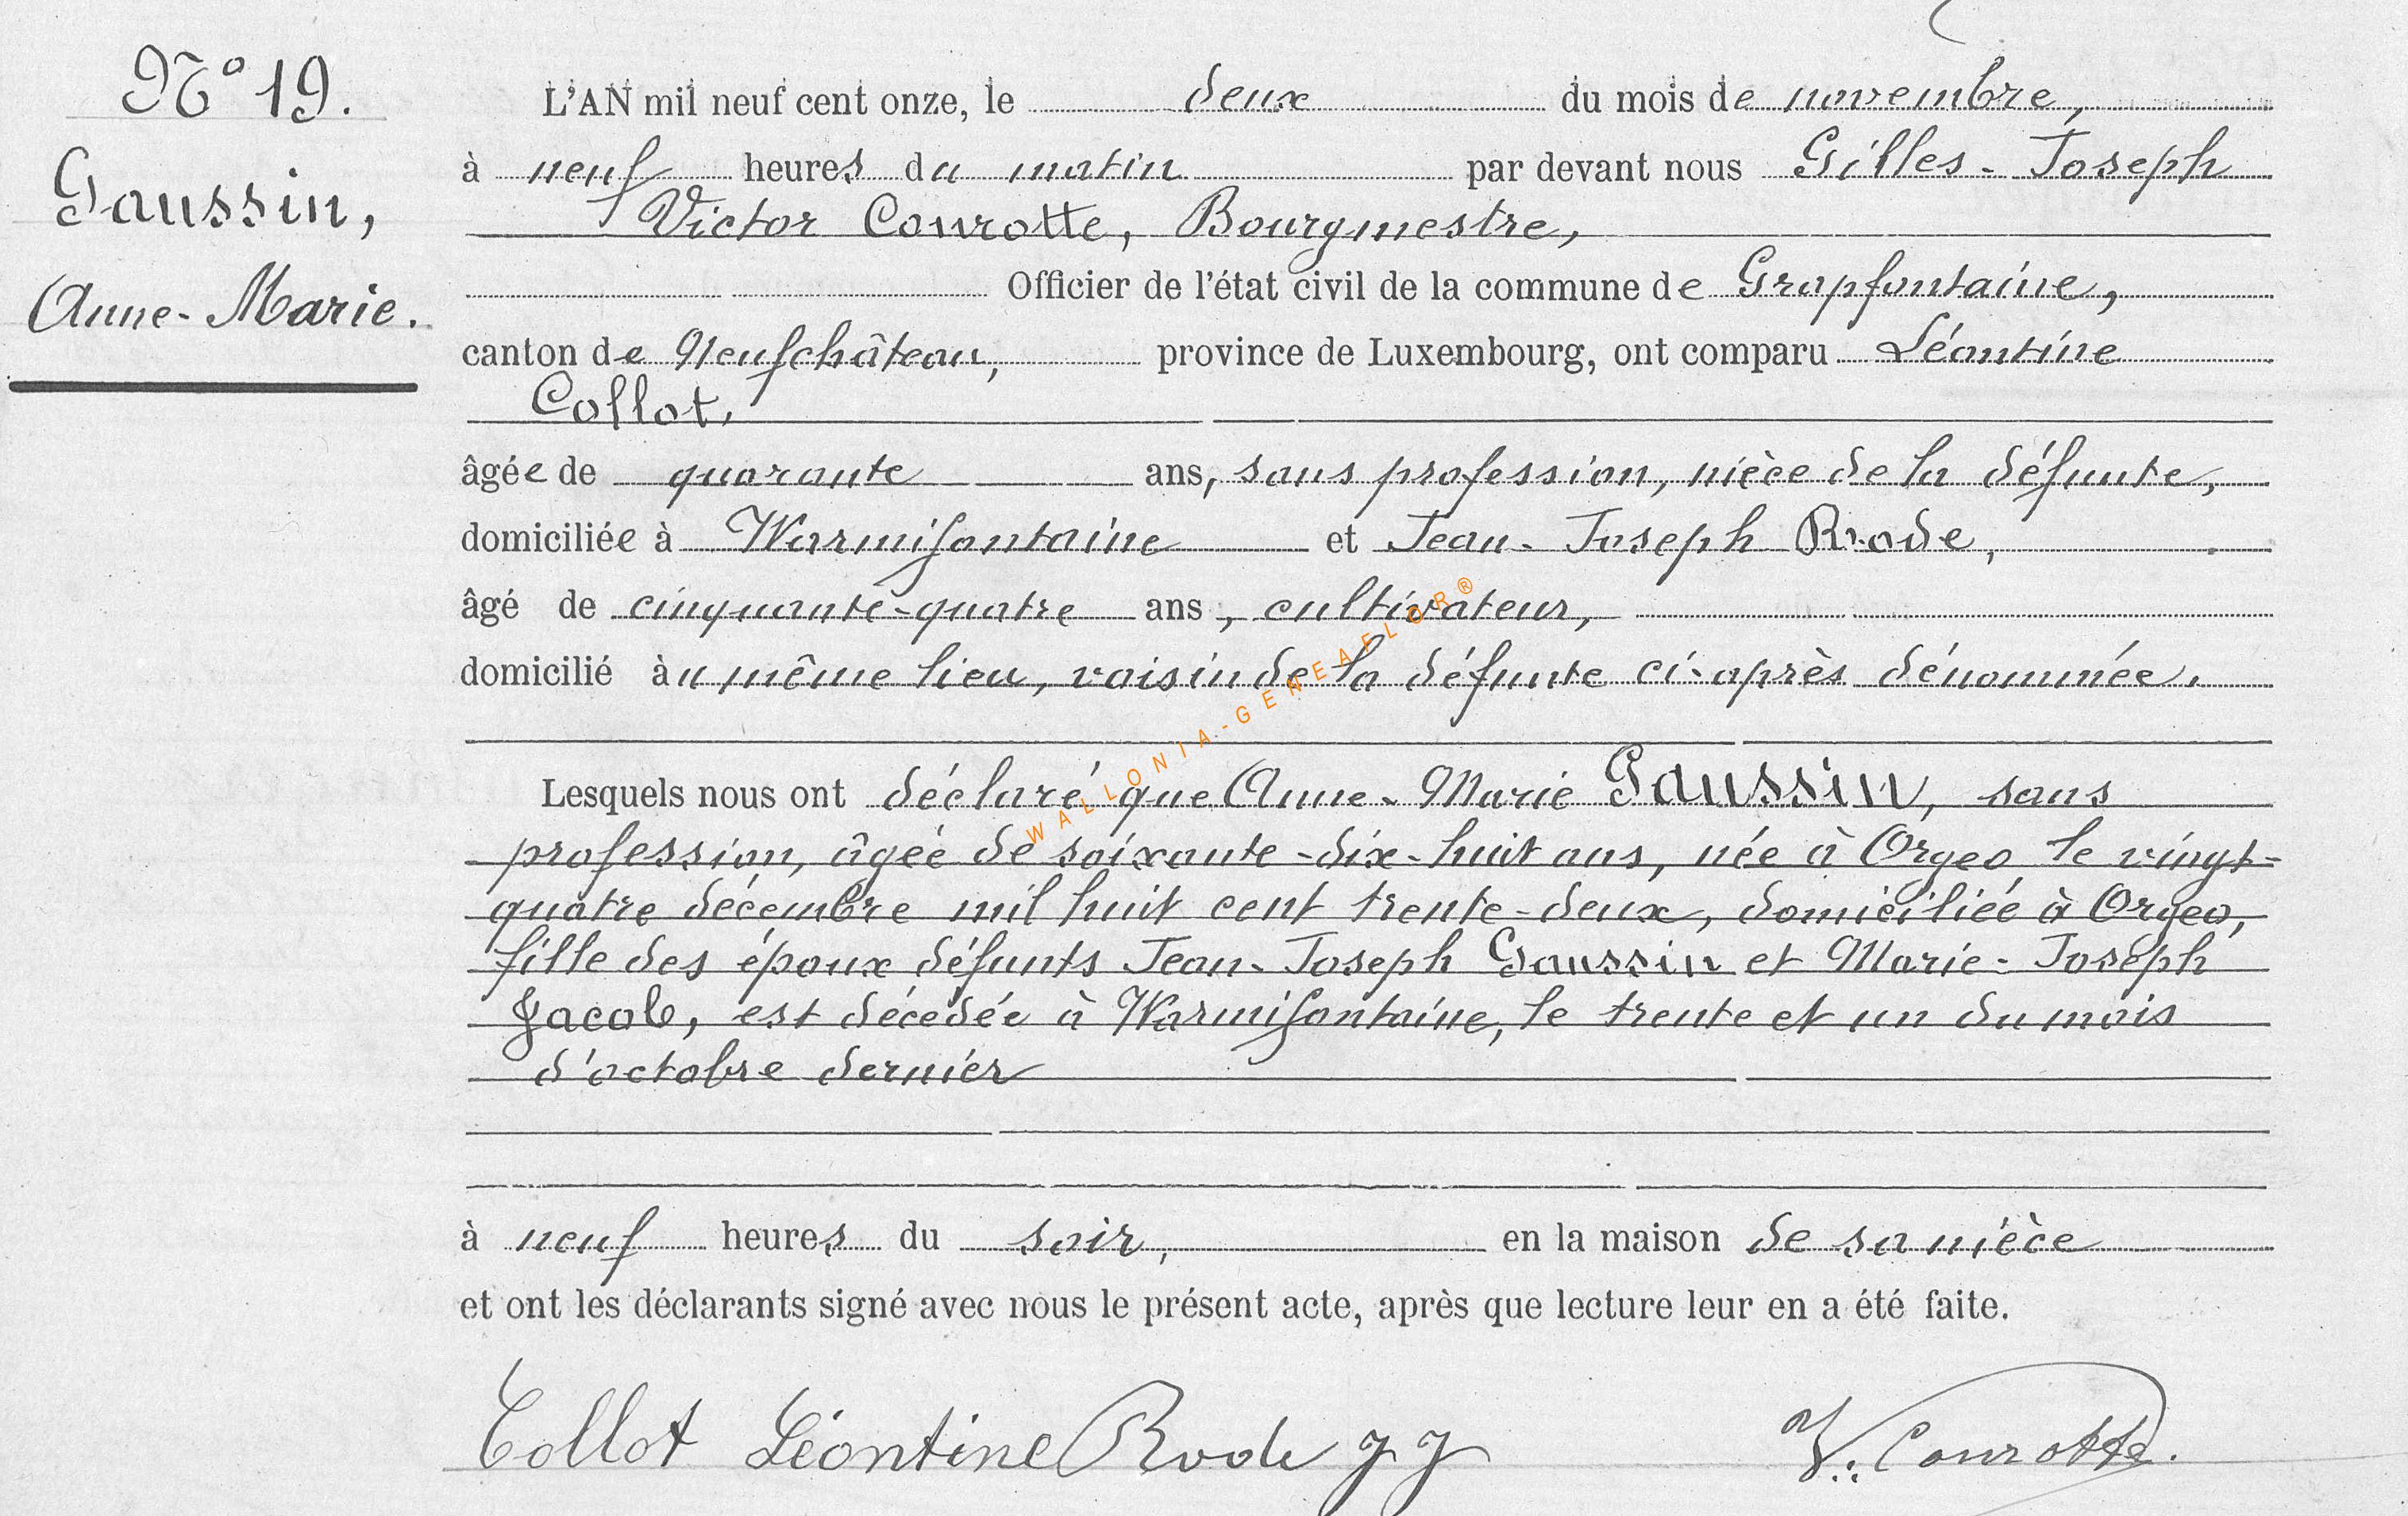 N° 19.
Gaussin,
Anne-Marie.
L'AN mil neuf cent onze, le deux du mois de novembre,
à neuf heures du matin par devant nous Gilles-Joseph
Victor Courotte, Bourgmestre,
Officier de l'état civil de la commune de Grapfontaine,
canton de Neufchâteau, province de Luxembourg, ont comparu Léontine
Collot,
âgée de quarante ans, sans profession, nièce de la défunte,
domiciliée à Warmifontaine et Jean-Joseph Rode,
âgé de cinquante-quatre ans, cultivateur,
domicilié au même lieu, voisin de la défunte ci-après dénommée.
Lesquels nous ont déclaré que Anne-Marie Gaussin, sans
profession, âgée de soixante-dix-huit ans, née à Orgeo, le vingt-
quatre décembre mil huit cent trente-deux, domiciliée à Orgeo,
fille des époux défunts Jean-Joseph Gaussin et Marie-Joseph
Jacob, est décédée à Warmifontaine, le trente et un du mois
d'octobre dernier
à neuf heures du soir, en la maison de sa nièce
et ont les déclarants signé avec nous le présent acte, après que lecture leur en a été faite.
Collot Léontine Rode J J V. Courotte.
WALLONIA-GENEAFLOR®